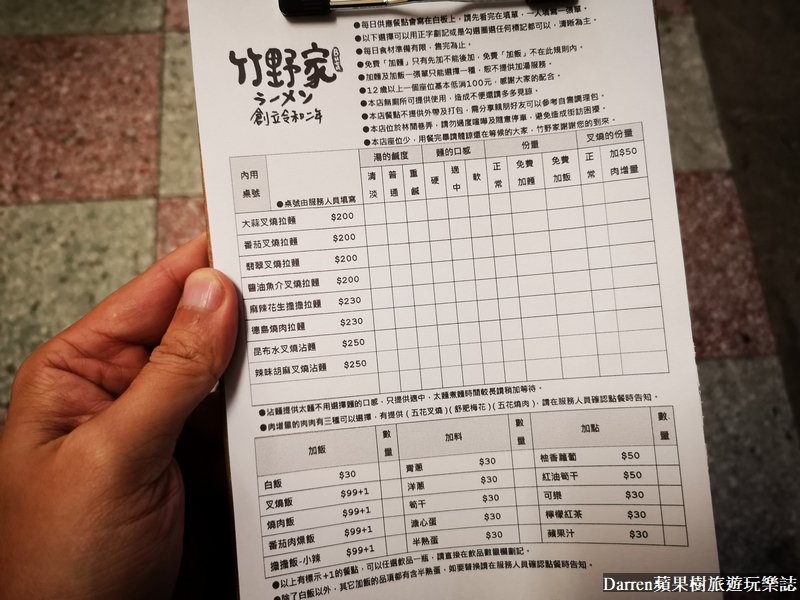 竹野家
ラーメン
創立令和二年
●每日供應餐點會寫在白板上,請先看完在填單,一人填寫一張單。
●以下選擇可以用正字劃記或是勾選圈選任何標記都可以,清晰為主。
●每日食材準備有限,售完為止。
●免費「加麵」只有先加不能後加,免費「加飯」不在此規則內。
●加麵及加飯一張單只能選擇一種,恕不提供加湯服務。
●12歲以上一個座位基本低消100元,感謝大家的配合。
●本店無廁所可提供使用,造成不便還請多多見諒。
●本店餐點不提供外帶及打包,需分享親朋好友可以參考自售調理包。
●本店位於林間巷弄,請勿過度喧嘩及隨意停車,避免造成街坊困擾。
●本店座位少,用餐完畢請體諒還在等候的大家,竹野家謝謝您的到來。
內用桌號 ●桌號由服務人員填寫
湯的鹹度 麵的口感 份量 叉燒的份量
清淡 普通 重鹹 硬 適中 軟 正常 免費加麵 免費加飯 正常 加$50肉增量
大蒜叉燒拉麵 $200
番茄叉燒拉麵 $200
翡翠叉燒拉麵 $200
醬油魚介叉燒拉麵 $200
麻辣花生擔擔拉麵 $230
德島燒肉拉麵 $230
昆布水叉燒沾麵 $250
辣味胡麻叉燒沾麵 $250
●沾麵提供太麵不用選擇麵的口感,只提供適中,太麵煮麵時間較長請稍加等待。
●肉增量的肉肉有三種可以選擇,有提供(五花叉燒)(舒肥梅花)(五花燒肉),請在服務人員確認點餐時告知。
加飯 數量 加料 數量 加點 數量
白飯 $30 青蔥 $30 柚香蘿蔔 $50
叉燒飯 $99+1 洋蔥 $30 紅油筍干 $50
燒肉飯 $99+1 筍干 $30 可樂 $30
番茄肉燥飯 $99+1 溏心蛋 $30 檸檬紅茶 $30
擔擔飯-小辣 $99+1 半熟蛋 $30 蘋果汁 $30
●以上有標示+1的餐點,可以任選飲品一瓶,請直接在飲品數量欄劃記。
●除了白飯以外,其它加飯的品項都有含半熟蛋,如要替換請在服務人員確認點餐時告知。
Darren蘋果樹旅遊玩樂誌